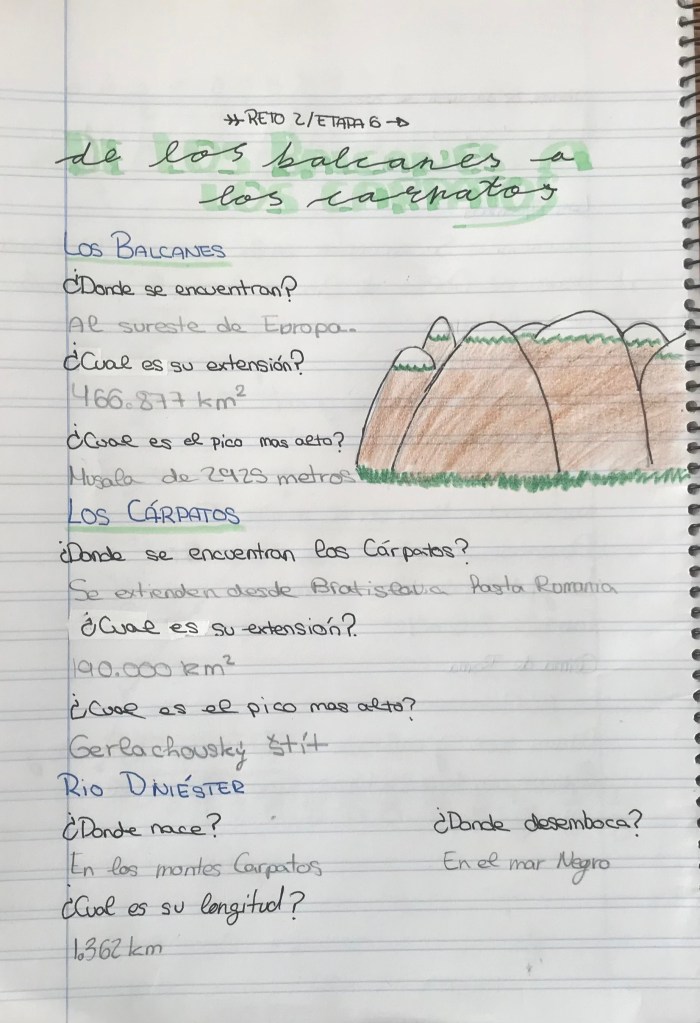 RETO 2/ETAPA 6
de los balcanes a
los carpatos
LOS BALCANES
¿Donde se encuentran?
Al sureste de Europa.
¿Cual es su extensión?
466.877 km²
¿Cual es el pico mas alto?
Musala de 2925 metros
LOS CÁRPATOS
¿Donde se encuentran los Cárpatos?
Se extienden desde Bratislavia hasta Romania
¿Cual es su extensión?
190.000 km²
¿Cual es el pico mas alto?
Gerlachovský štít
RIO DNIÉSTER
¿Donde nace? ¿Donde desemboca?
En los montes Carpatos En el mar Negro
¿Cual es su longitud?
1.362 km